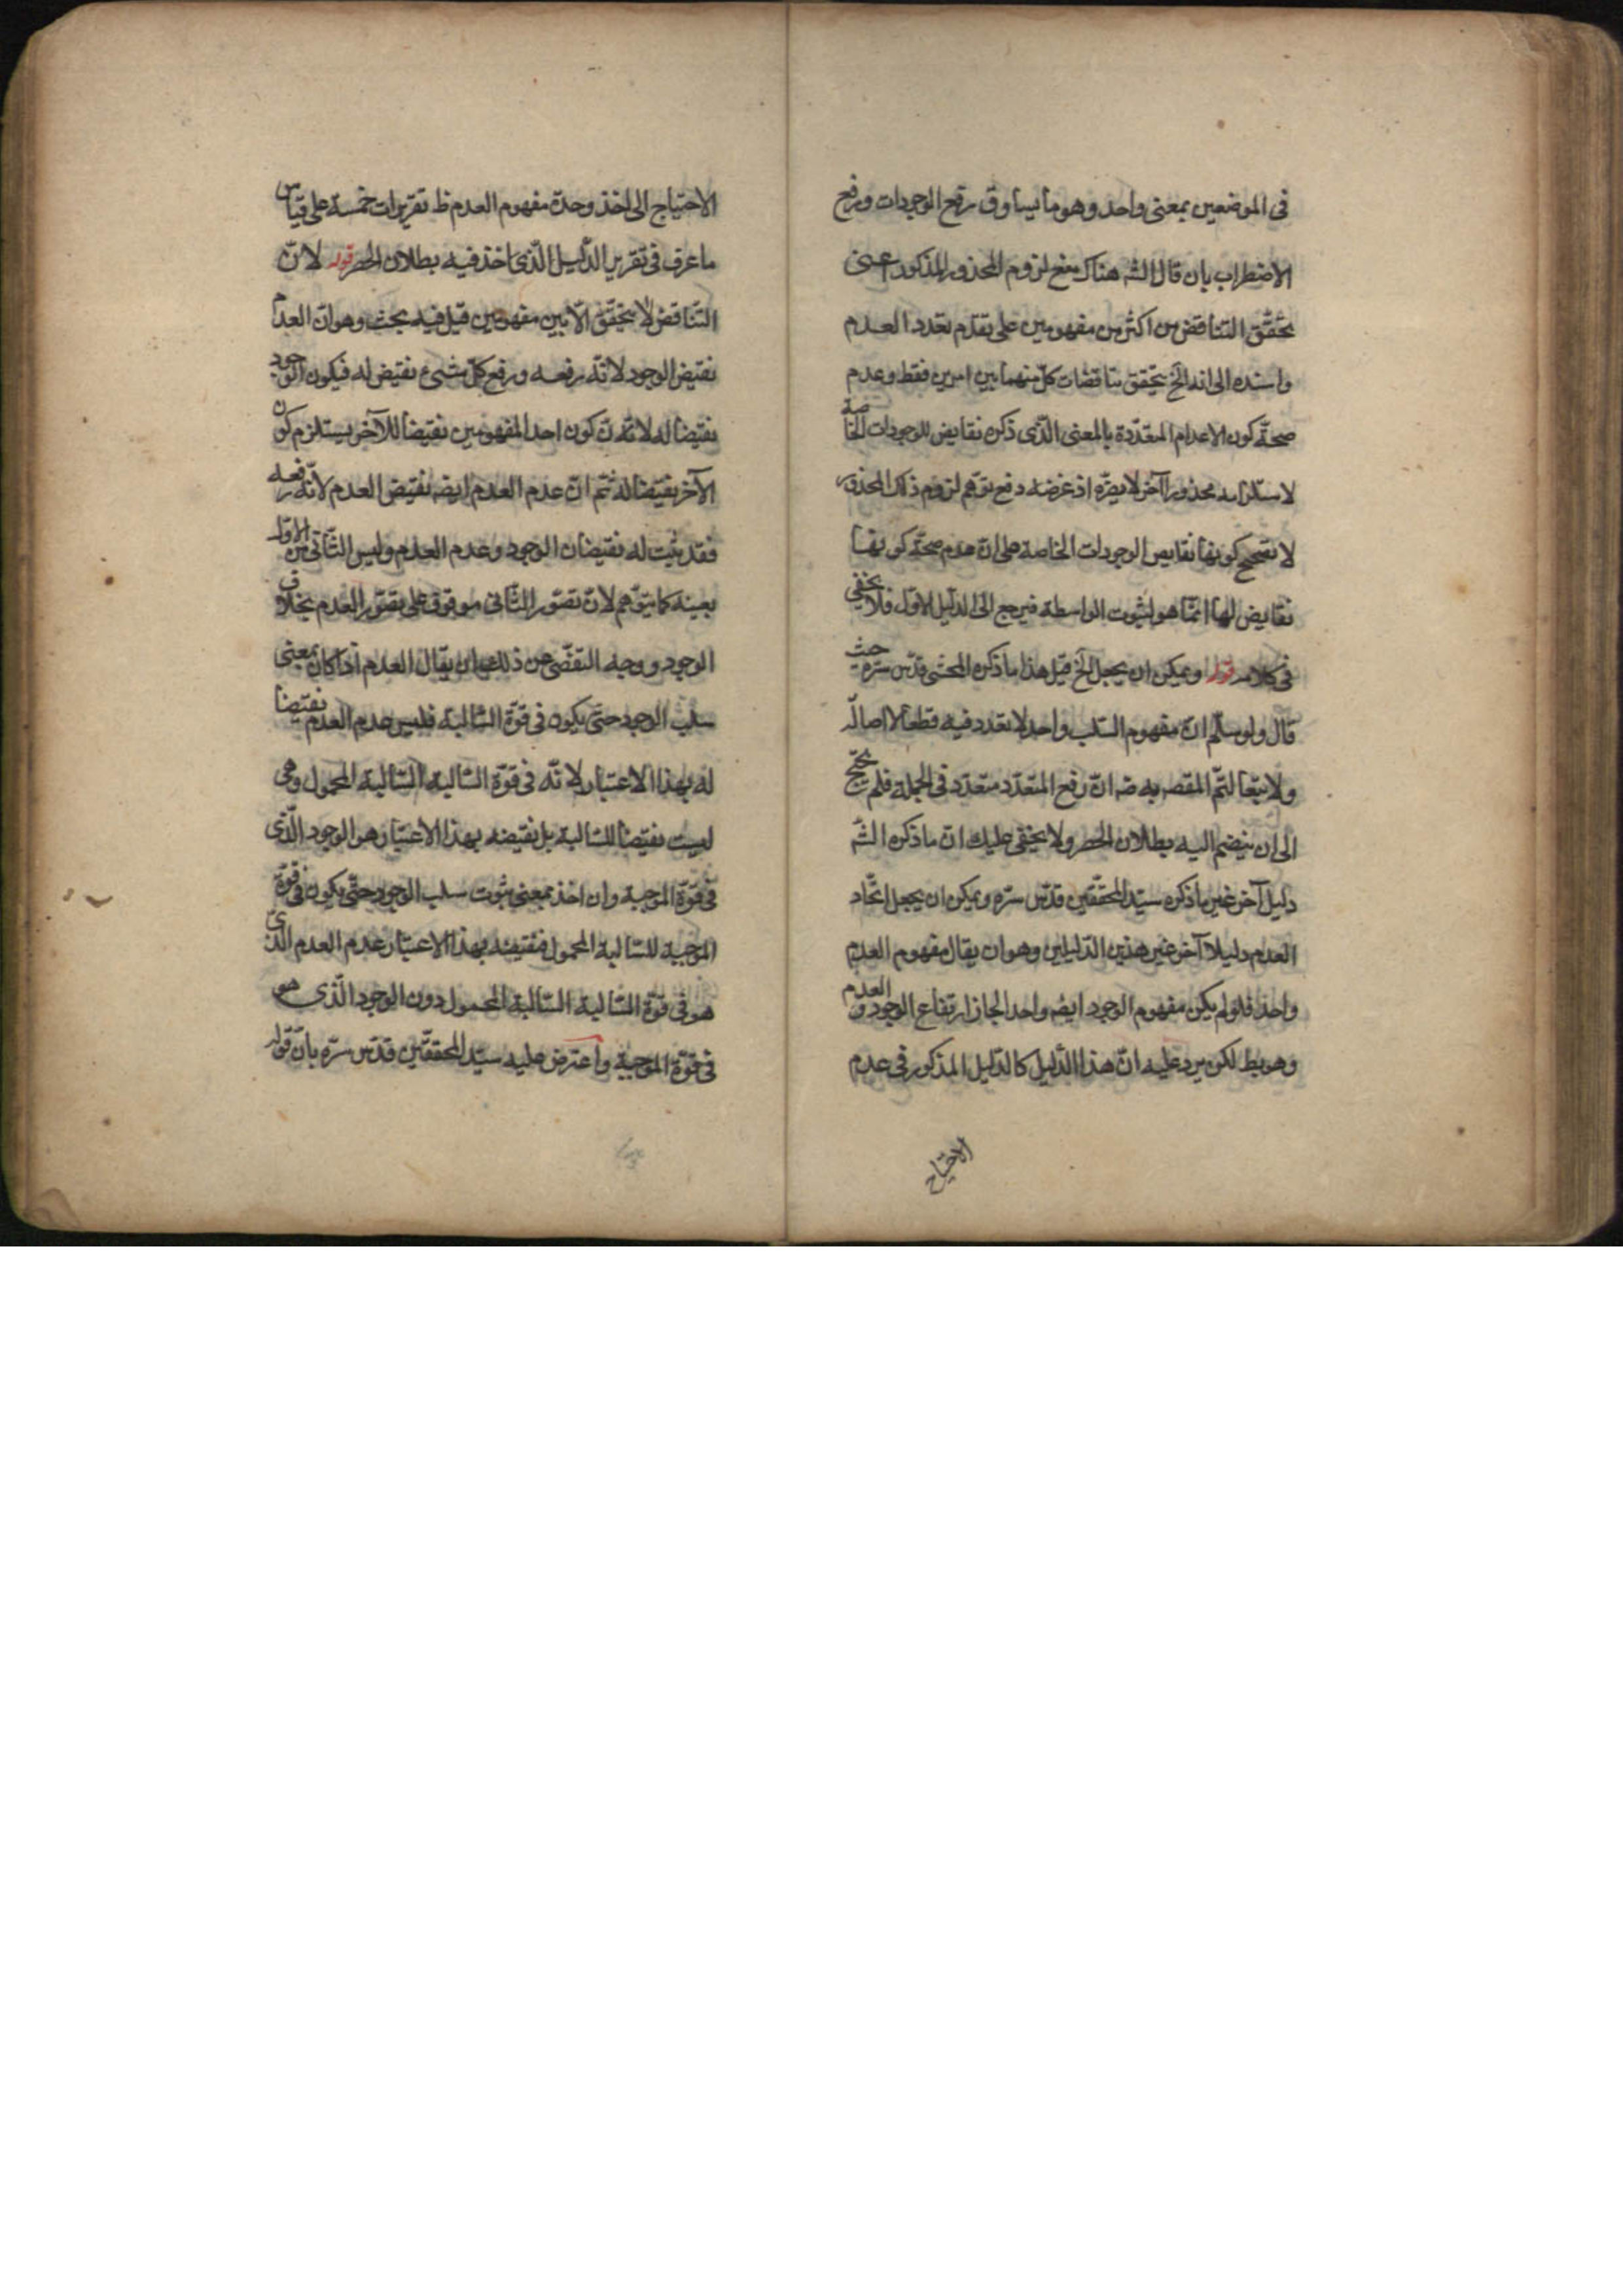 في الموضعين بمعنى واحد وهو ما يساوق رفع الوجودات ورفع
الاضطراب بان قال الشه هناك منع لزوم المحذور المذكور اعنى
تحقق التناقض من اكثر من مفهومين على تقدم تعدد العدم
واسنده الى انه الخ يتحقق تناقضات كل منهما بين امرين فقط وعدم
صحة كون الاعدام المتعددة بالمعنى الذى ذكره نقايض للوجودات الخاصة
لاستلزامه محذورا آخر لا يضره اذ غرضه دفع توهم لزوم ذلك المحذور
لا تصحيح كونها نقايض الوجودات الخاصة على ان عدم صحة كونها
نقايض لها انما هو لثبوت الواسطة فيرجع الى الدليل الاول فلا يخفى
فى كلامه قوله ويمكن ان يجعل الخ قيل هذا ما ذكره المحشى قدس سره حيث
قال ولو سلم ان مفهوم السلب واحد لا تعدد فيه قطعا لا اصالة
ولا تبعا لتم المقصر به ضه ان رفع المتعدد متعدد فى الجملة فلم يحتج
الى ان ينضم اليه بطلان الحصر ولا يخفى عليك ان ما ذكره الشه
دليل آخر غير ما ذكره سيد المحققين قدس سره ويمكن ان يجعل اتحاد
العدم دليلا آخر غير هذين الدليلين وهو ان يقال مفهوم العدم
واحد فلو لم يكن مفهوم الوجود ايضه واحدا لجاز ارتفاع الوجود والعدم
وهو بط لكن يرد عليه ان هذا الدليل كالدليل المذكور فى عدم
الاحتياج
الاحتياج الى اخذ وحدة مفهوم العدم ظ تقريرات خمسة على قياس
ما عرف فى تقرير الدليل الذى اخذ فيه بطلان الحصر قوله لان
التناقض لا يتحقق الا بين مفهومين قيل فيه بحث وهو ان العدم
نقيض الوجود لانه رفعه ورفع كل شىء نقيض له فيكون الوجود
نقيضا له لانه كون احد المفهومين نقيضا للآخر يستلزم كون
الآخر نقيضا له ثم ان عدم العدم ايضه نقيض العدم لانه رفعه
فقد ثبت له نقيضان الوجود وعدم العدم وليس الثانى من الاول
بعينه كما يتوهم لان تصور الثانى موقوف على تصور العدم بخلاف
الوجود ووجه التفصى عن ذلك ان يقال العدم اذا كان بمعنى
سلب الوجود حتى يكون فى قوة السالبة فليس عدم العدم نقيضا
له بهذا الاعتبار لانه فى قوة السالبة السالبة المحمول وهى
ليست نقيضا للسالبة بل نقيضه بهذا الاعتبار هو الوجود الذى
فى قوة الموجبة وان اخذ بمعنى ثبوت سلب الوجود حتى يكون فى قوة
الموجبة للسالبة المحمول فنقيضه بهذا الاعتبار عدم العدم الذى
هو فى قوة السالبة السالبة المحمول دون الوجود الذى هو
فى قوة الموجبة واعترض عليه سيد المحققين قدس سره بان قوله